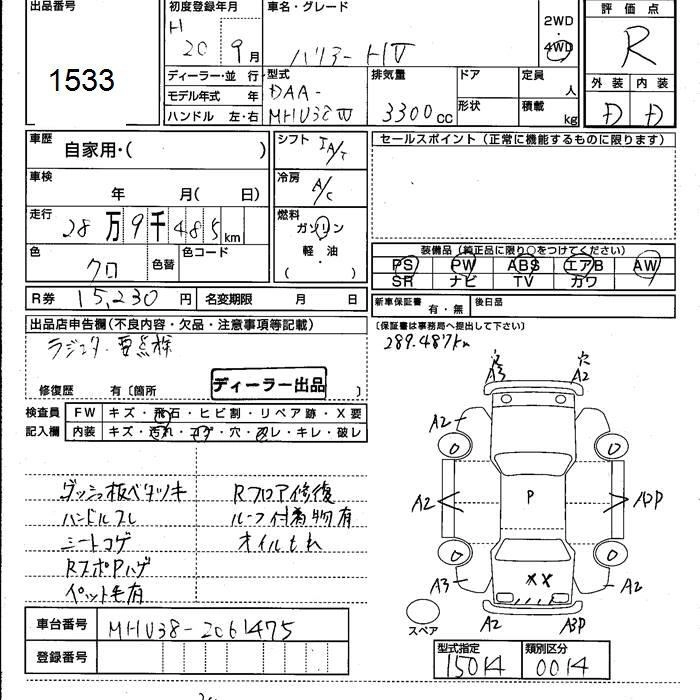 出品番号
1533
初度登録年月
H
20 9月
ディーラー・並 行
モデル年式 年
ハンドル 左・右
車名・グレード
ハリアーHV
2WD
・
4WD
型式
DAA-
MHU38W
排気量
3300cc
ドア
形状
定員
人
積載
kg
評価点
R
外装 内装
D D
車歴
自家用・( )
車検
年 月( 日)
走行
28万9千485km
色
クロ
色替
色コード
シフト
IA/T
冷房
A/C
燃料
ガソリン
軽・油
( ・ )
R券 15,230円
名変期限 月 日
セールスポイント(正常に機能するものに限ります)
装備品(純正品に限り○をつけてください)
PS PW ABS エアB AW
SR ナビ TV カワ
新車保証書 有・無
後日品
〔保証書は事務局へ提出して下さい〕
289.487km
出品店申告欄(不良内容・欠品・注意事項等記載)
ラジエター要点検
修復歴 有〔箇所 〕
ディーラー出品
検査員
記入欄
FW キズ・飛石・ヒビ割・リペア跡・X要
内装 キズ・汚れ・コゲ・穴・スレ・キレ・破レ
ダッシュ板ベタツキ
ハンドルスレ
シートコゲ
RスポPハゲ
ペット毛有
Rフロア修復
ルーフ付着物有
オイルもれ
穴 穴
A3 A2
A2
A2
P
A3
XX
A2
A2 A3P
スペア
車台番号 MHU38-2061475
登録番号
型式指定
15014
類別区分
0014